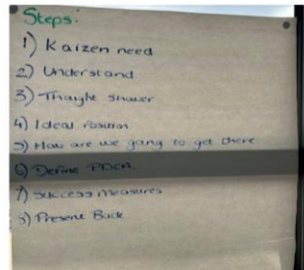 Steps:
1) Kaizen need
2) Understand
3) Thought Shower
4) Ideal Position
5) How are we going to get there
6) Define PDCA.
7) Success Measures
8) Present Back